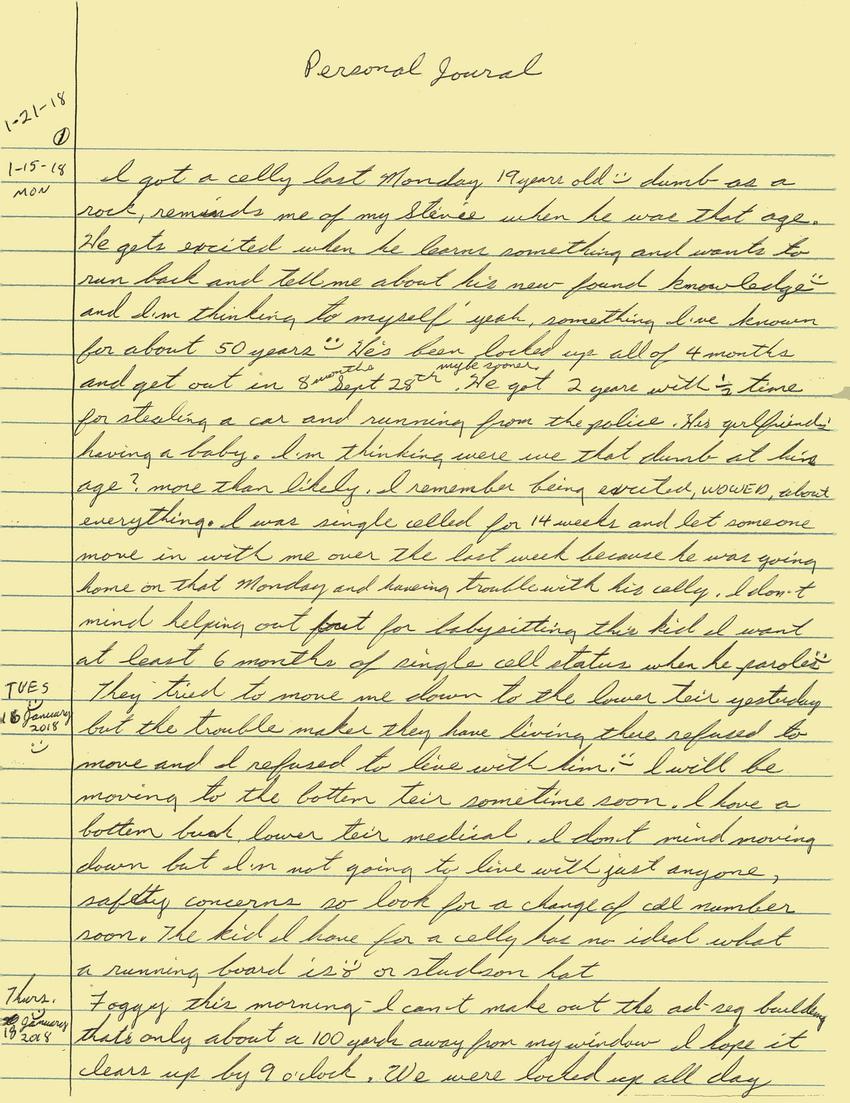 Personal Joural
1-21-18
①
1-15-18
MON
I got a celly last Monday 19 years old :) dumb as a
rock, reminds me of my Stevie when he was that age.
He gets excited when he learns something and wants to
run back and tell me about his new found knowledge :)
and I'm thinking to myself ' yeah, something I've known
for about 50 years :) He's been locked up all of 4 months
and get out in 8 months Sept 28th mybe sooner. He got 2 years with ½ time
for stealing a car and running from the police. His girlfriend's
having a baby. I'm thinking were we that dumb at his
age? more than likely. I remember being excited, WOWED, about
everything. I was single celled for 14 weeks and let someone
move in with me over the last week because he was going
home on that Monday and haveing trouble with his celly. I don't
mind helping out but for babysitting this kid I want
at least 6 months of single cell status when he paroles :)
TUES
16 January
2018
:)
They tried to move me down to the lower teir yesterday
but the trouble maker they have living there refused to
move and I refused to live with him. :) I will be
moving to the bottem teir sometime soon. I have a
bottem bunk, lower teir medical. I don't mind moving
down but I'm not going to live with just anyone,
safety concerns so look for a change of cell number
soon. The kid I have for a celly has no ideal what
a running board is :) or studson hat
Thurs.
18 January
2018
Foggy this morning - I can't make out the ad-seg building
that's only about a 100 yards away from my window I hope it
clears up by 9 o'clock. We were locked up all day